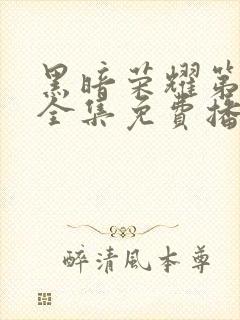 黑暗荣耀第
全集免費播
醉清風本尊